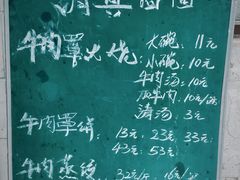 清真面馆
牛肉罩火烧 大碗：11元
小碗：10元
牛肉汤：10元
加牛肉：10元/份
清汤：3元
牛肉罩饼：13元 23元 33元
43元 53元
牛肉蒸饺 32元/斤 16元/